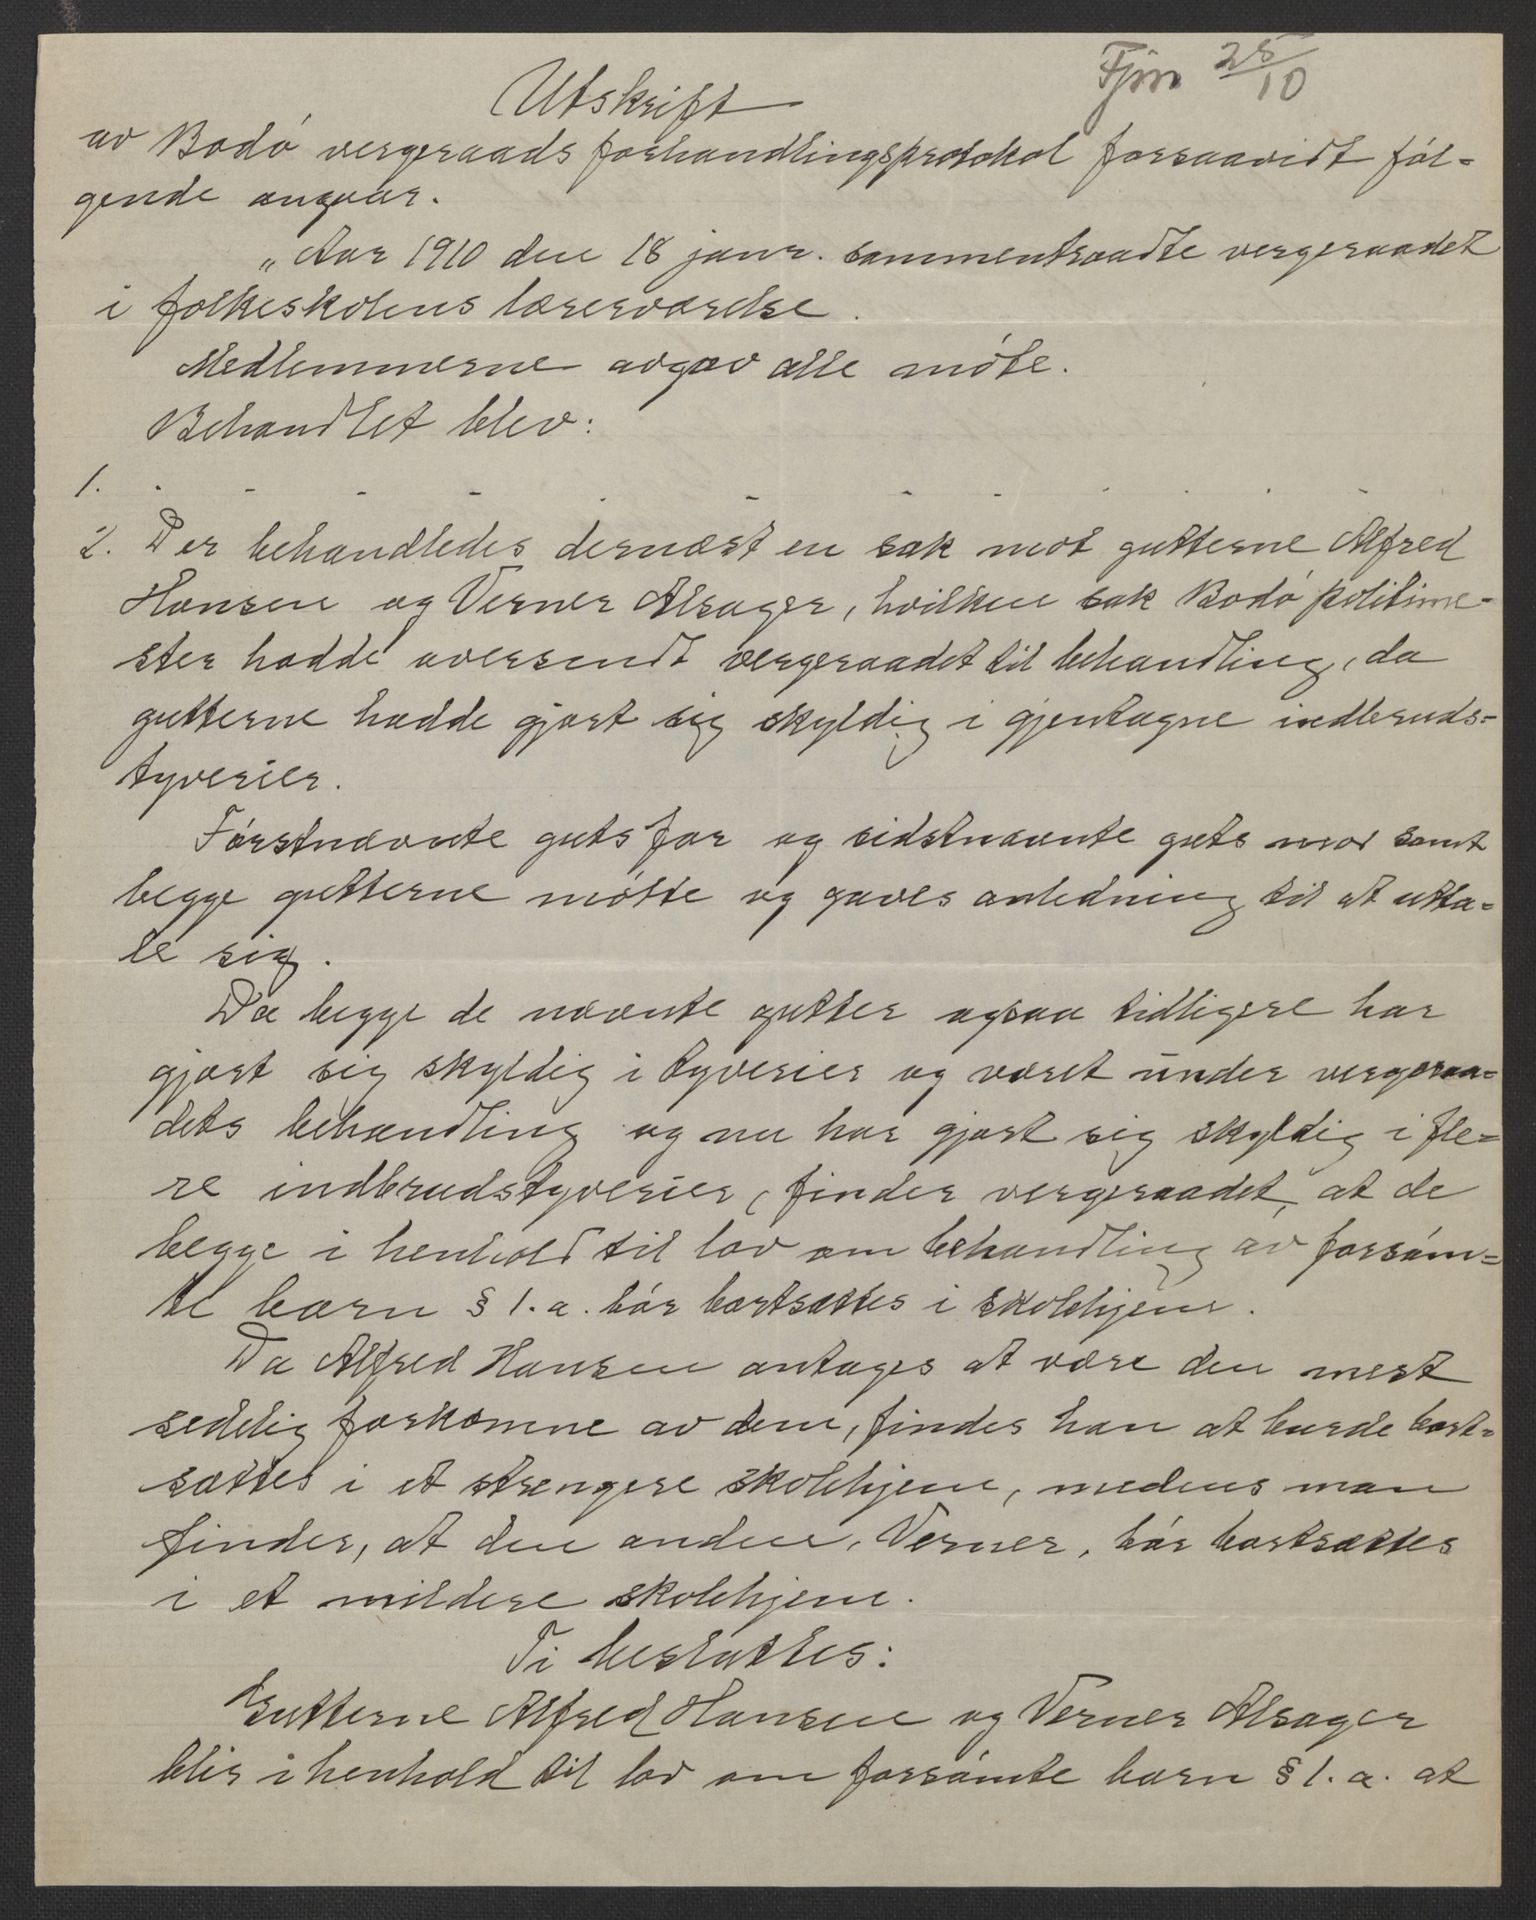 Fjm 25/10
Utskrift
av Bodó vergeraads forhandlingsprotokol forsaavidt föl-
gende angaar.
"Aar 1910 den 18 janr. sammentraadte vergeraadet
i folkeskolens lærerværelse.
Medlemmerne avgav alle möte.
Behandlet blev:
1. - - - - - - - - - - - -
2. Der behandledes dernæst en sak mot gutterne Alfred
Hansen og Verner Alsager, hvilken sak Bodó politime-
ster hadde oversendt vergeraadet til behandling, da
gutterne hadde gjort sig skyldig i gjentagne indbruds-
tyverier.
Förstnævnte guts far og sidstnævnte guts mor samt
begge gutterne mötte og gaves anledning til at utta-
le sig.
Da begge de nævnte gutter ogsaa tidligere har
gjort sig skyldig i tyverier og været under vergeraa-
dets behandling og nu har gjort sig skyldig i fle-
re indbrudstyverier, finder vergeraadet, at de
begge i henhold til lov om behandling av forsöm-
te barn § 1. a. bör bortsættes i skolehjem.
Da Alfred Hansen antages at være den mest
sedelig forkomne av dem, findes han at burde bort-
sættes i et strengere skolehjem, medens man
finder, at den anden, Verner, bör bortsættes
i et mildere skolehjem.
Ti besluttes:
Gutterne Alfred Hansen og Verner Alsager
blir i henhold til lov om forsömte barn § 1. a. at